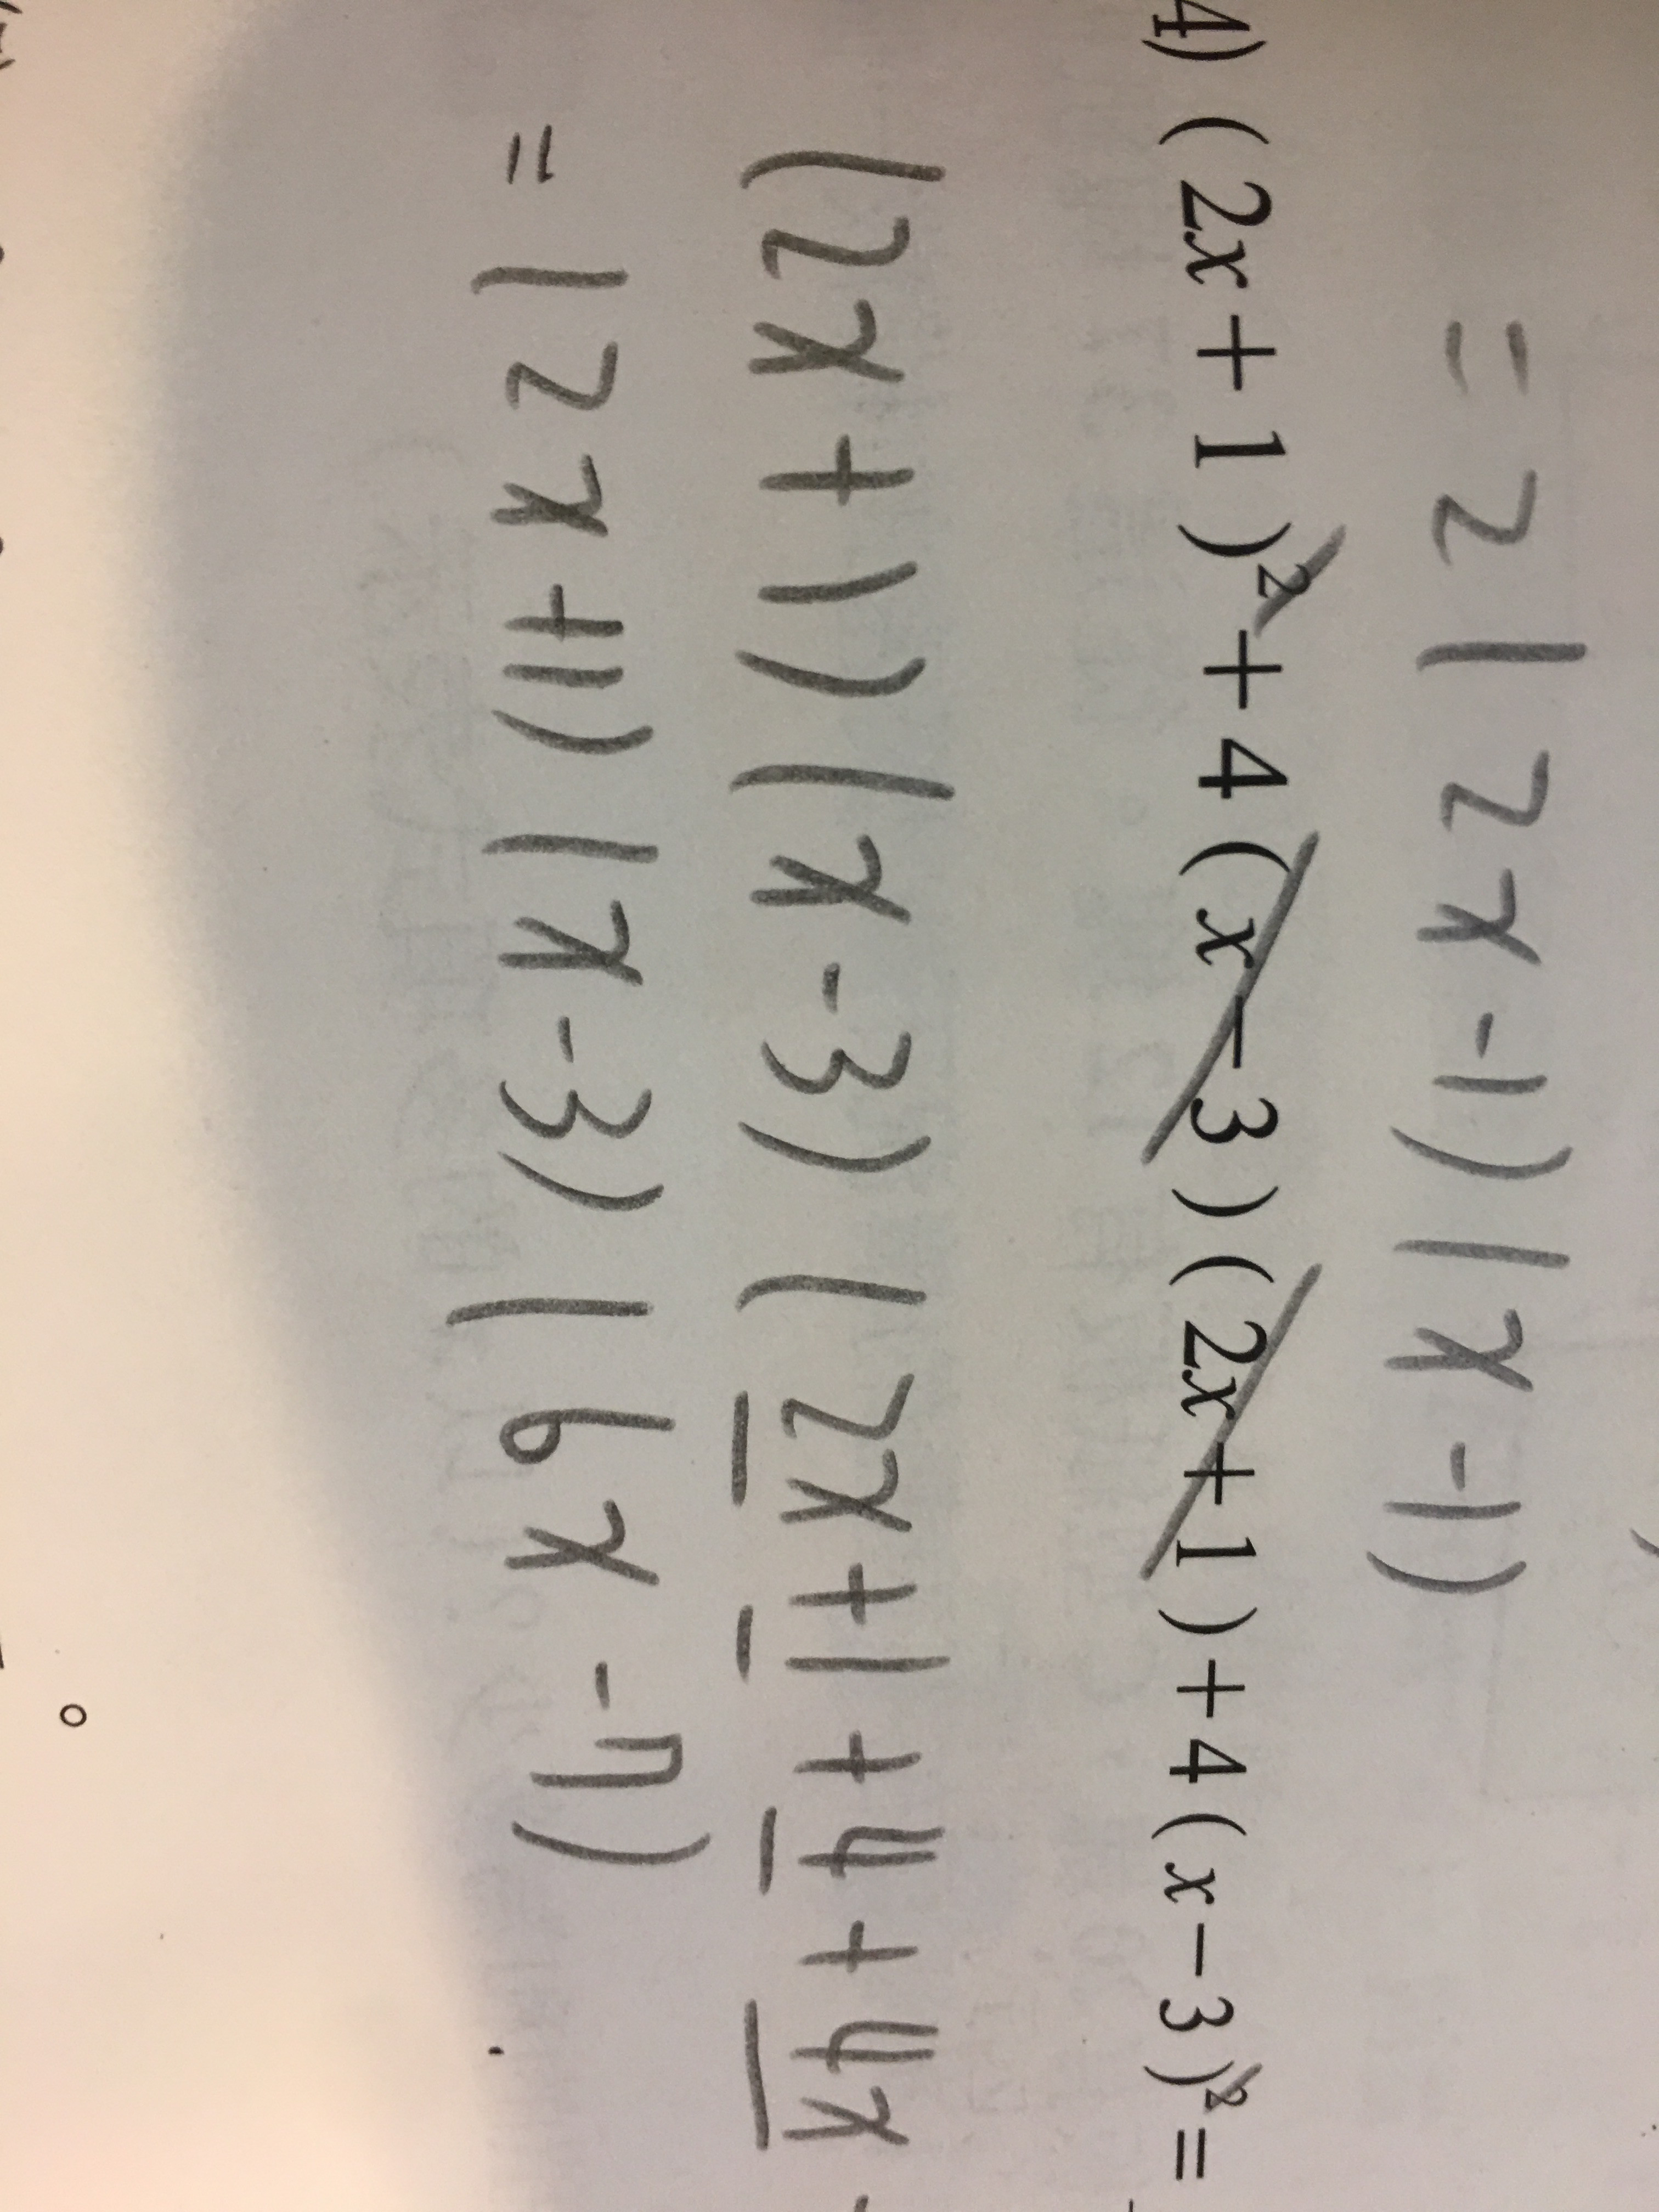 = 2(2x-1)(x-1)
4) (2x+1)²+4(x-3)(2x+1)+4(x-3)²=
(2x+1)(x-3)(2x+1+4+4x-
=(2x+1)(x-3)(6x-7)
。